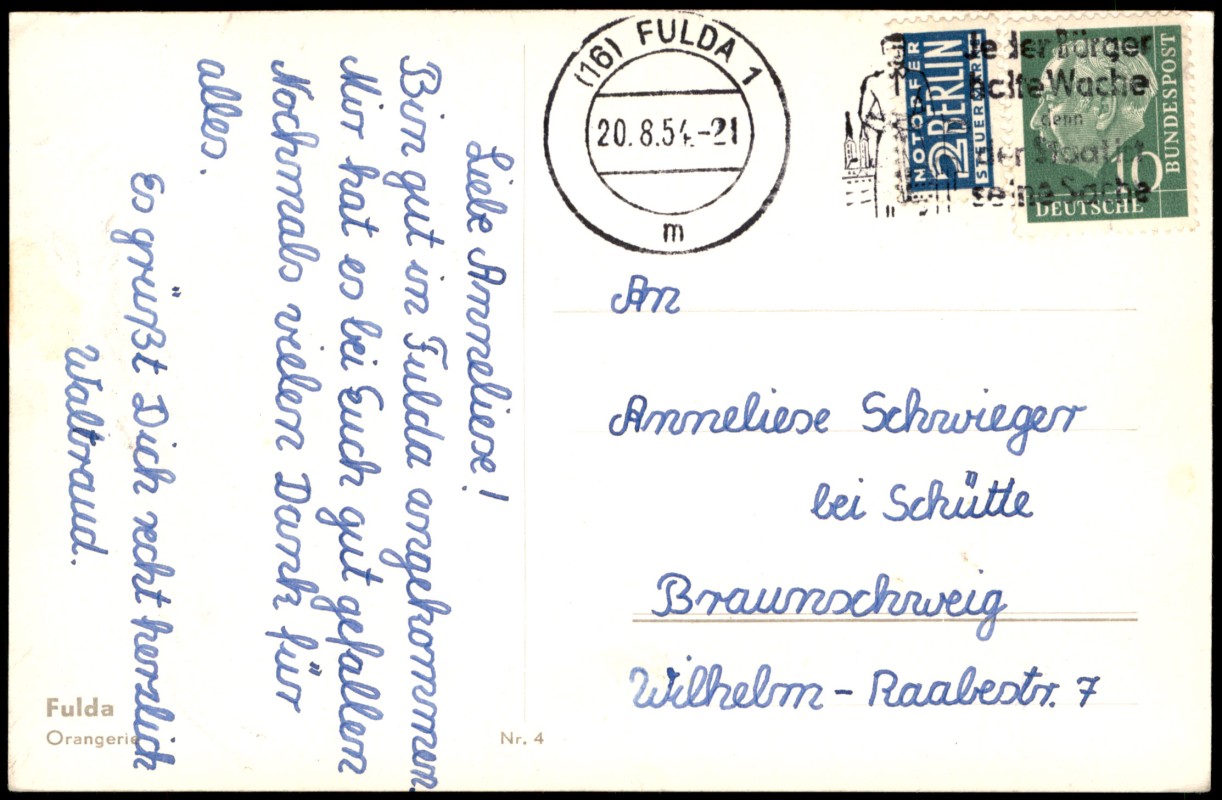 Liebe Anneliese!
Bin gut in Fulda angekommen.
Mir hat es bei Euch gut gefallen
Nochmals vielen Dank für
alles.
Es grüßt Dich recht herzlich
Waltraud.
Fulda
Orangerie
Nr. 4
(16) FULDA 1
20.8.54.-21
m
NOTOPFER
2 BERLIN
STEUERMARKE
Jeder Bürger
halte Wache
denn
der Staat ist
seine Sache
10
DEUTSCHE
BUNDESPOST
An
Anneliese Schwieger
bei Schütte
Braunschweig
Wilhelm - Raabestr. 7